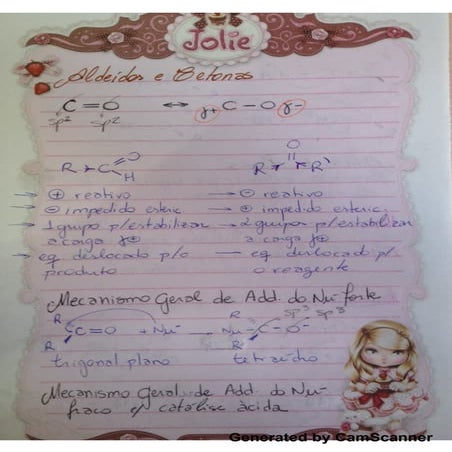 Jolie
Aldeidos e Cetonas
C=O ↔ γ+C–O γ-
sp² sp²
R C O H
R O R'
→ ⊕ reativo → ⊖ reativo
→ ⊖ impedido esteric. → ⊕ impedido esteric.
→ 1 grupo p/estabilizar → 2 grupos p/estabilizar
a carga γ⊕ a carga γ⊕
→ eq deslocado p/o — eq. deslocado p/
produto o reagente
Mecanismo Geral de Add. do Nu⁻ forte
R R sp³ sp³
C=O + Nu⁻ → Nu–C–O⁻
R R
trigonal plano tetraedro
Mecanismo Geral de Add. do Nu⁻
fraco c/ catálise ácida
Generated by CamScanner